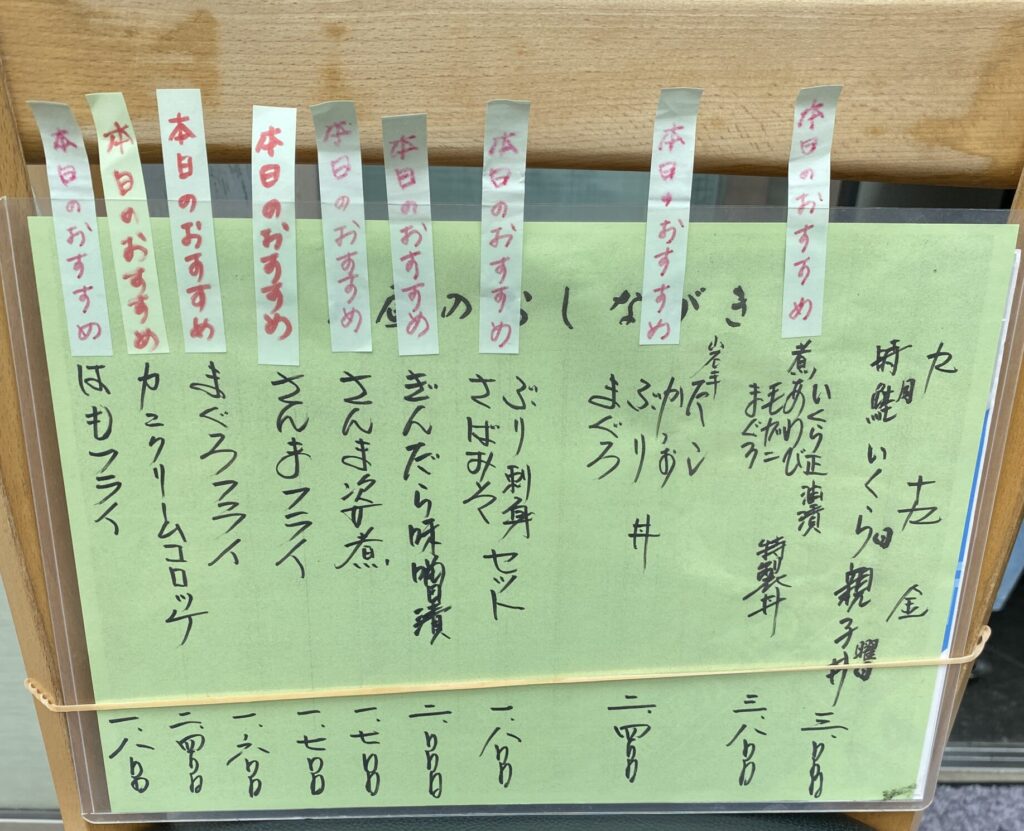 のおしながき
九月十九日金曜日
時鮭いくら親子丼 三、〇〇〇
本日のおすすめ
煮あわび いくら正油漬
毛がに
まぐろ
特製丼 三、八〇〇
本日のおすすめ
かつお
ぶり
まぐろ
丼 二、四〇〇
本日のおすすめ
ぶり刺身
さばみそ
セット 一、八〇〇
本日のおすすめ
ぎんだら味噌漬 二、〇〇〇
本日のおすすめ
さんま姿煮 一、七〇〇
本日のおすすめ
さんまフライ 一、七〇〇
本日のおすすめ
まぐろフライ 一、六〇〇
本日のおすすめ
カニクリームコロッケ 二、四〇〇
本日のおすすめ
はもフライ 一、八〇〇